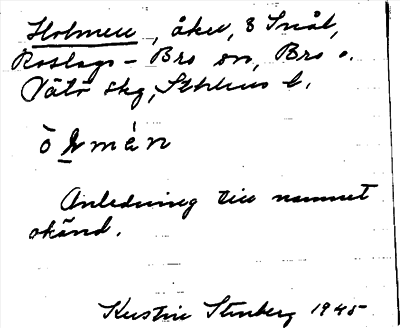 Holmen, åker, 3 Snål,
Roslags-Bro sn, Bro o.
Vätö skg, Sthlms l.
Anledning till namnet
okänd.
Kerstin Stenberg 1945